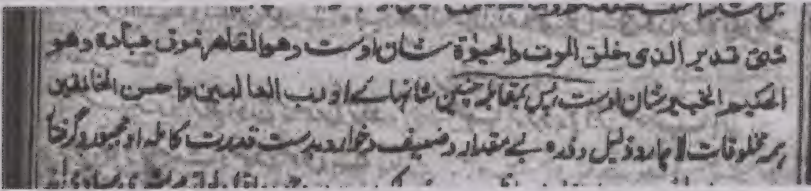 شیٔ قدیر الذی خلق الموت والحیوٰة شان اوست وهو القاهر فوق عباده وهو
الحکیم الخبیر شان اوست پس بمقابله چنین شانهائے او رب العالمین واحسن الخالقین
همه مخلوقات لاچار و ذلیل و ذره بے مقدار و ضعیف و خوار و بدست قدرت کامله او مجبور و گرفتار